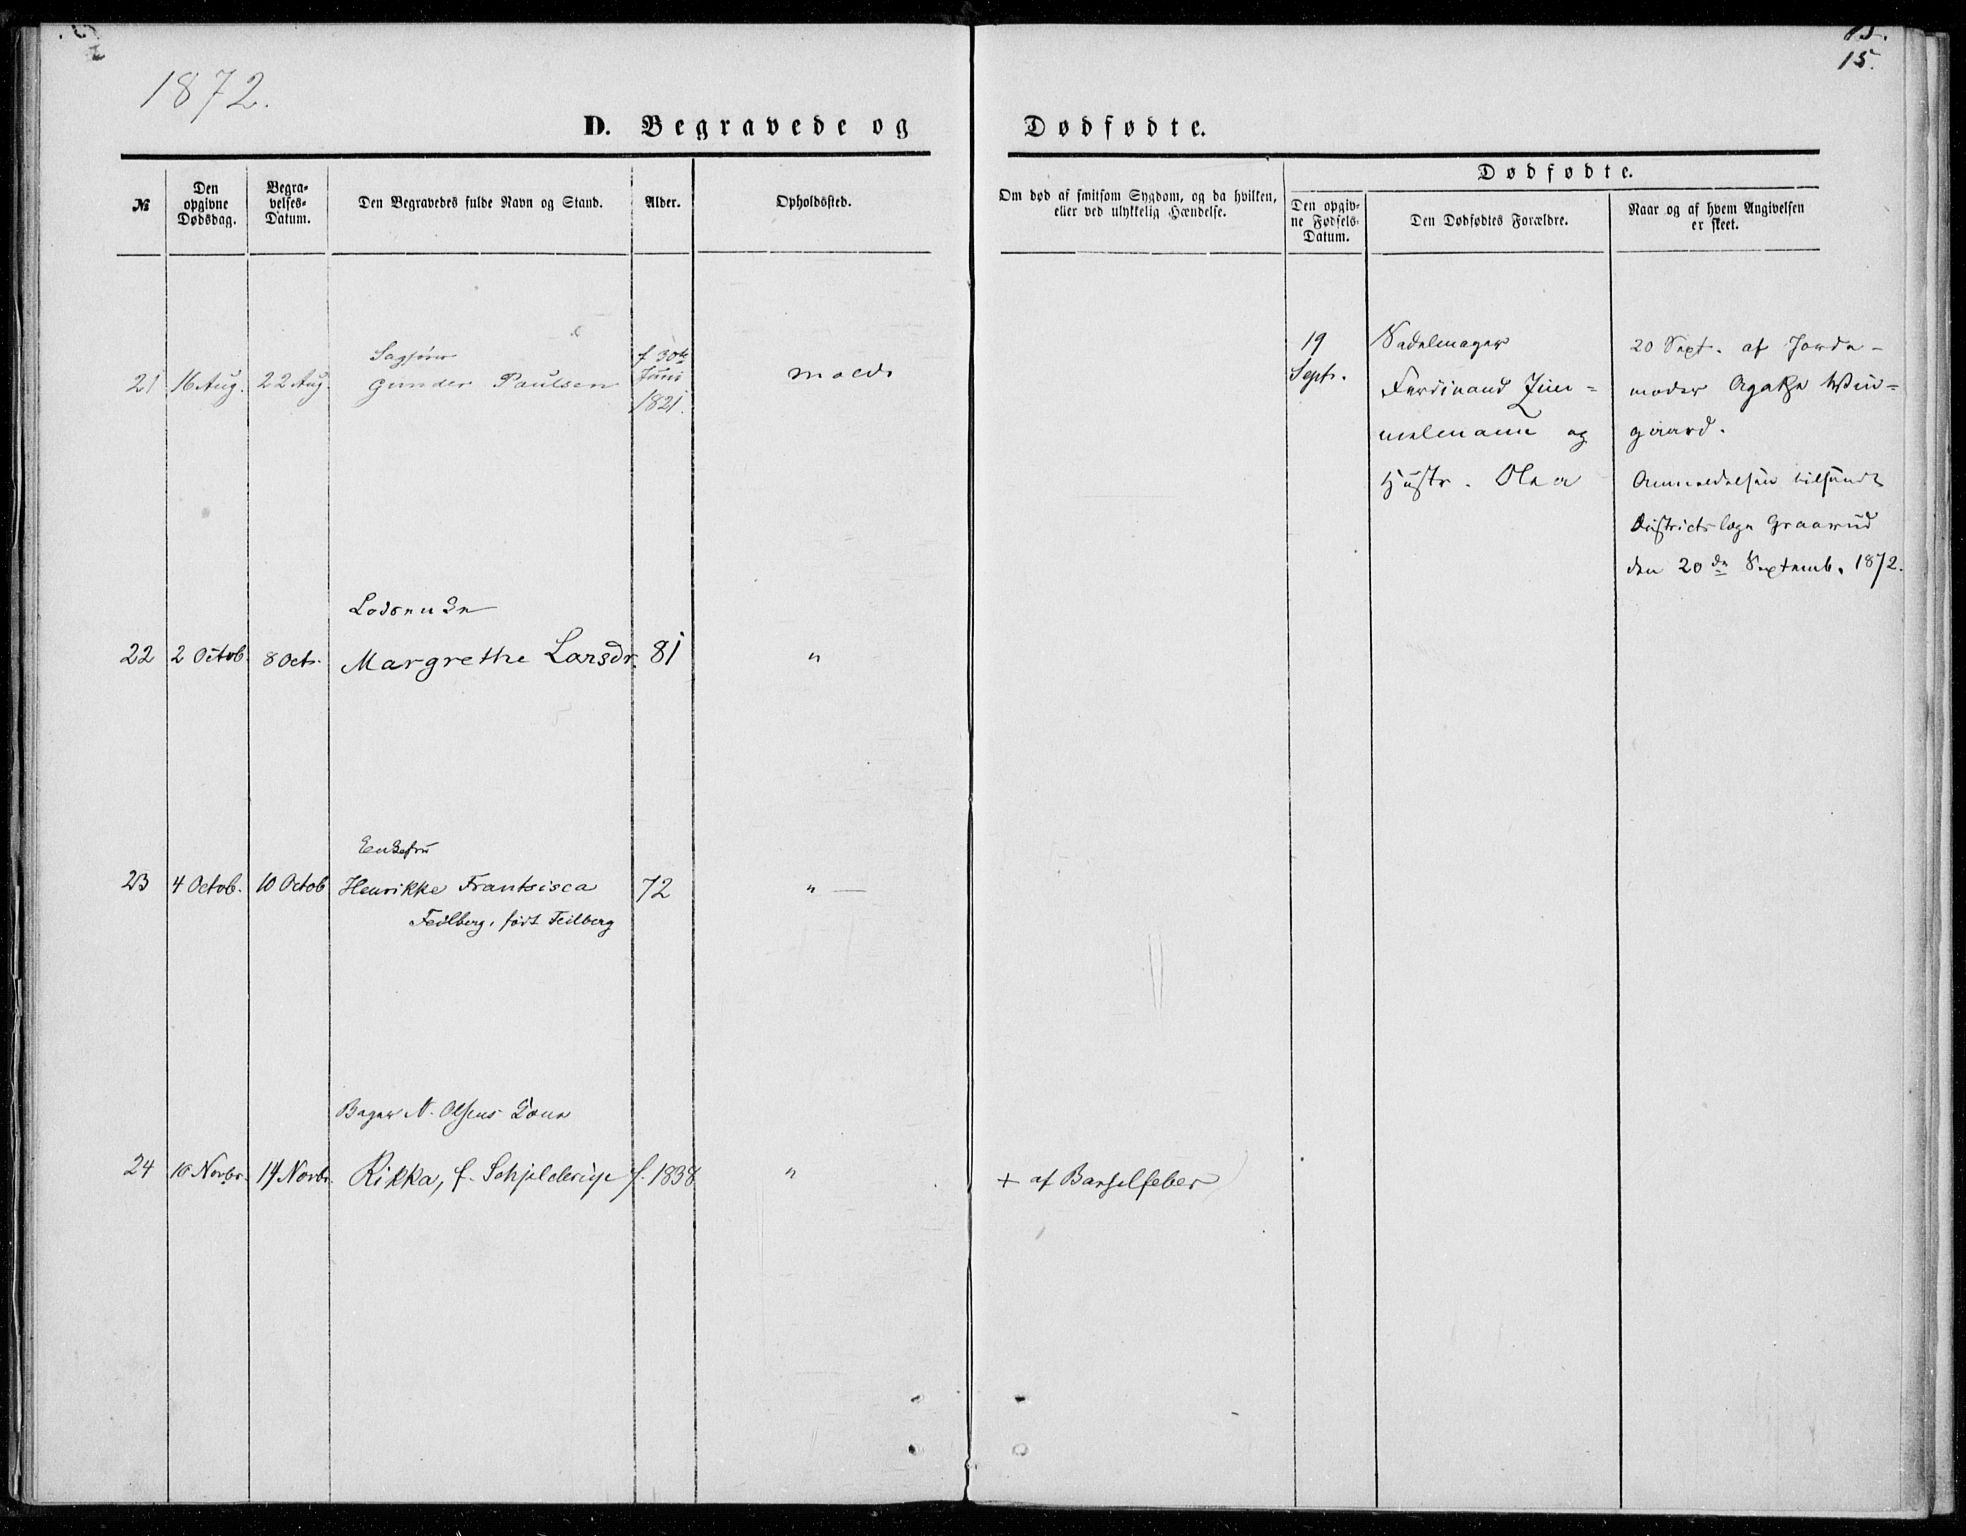 1872.
15.
15.
D. Begravede og Dødfødte.
№
Den opgivne Dødsdag.
Begra-velses-Datum.
Den Begravedes fulde Navn og Stand.
Alder.
Opholdssted.
Om død af smitsom Sygdom, og da hvilken, eller ved ulykkelig Hændelse.
Dødfødte.
Den opgiv-ne Fødsels-Datum.
Den Dødfødtes Forældre.
Naar og af hvem Angivelsen er skeet.
21 16 Aug. 22 Aug.
Sagfører
Gunder Paulsen
f. 30te
Juni
1821.
Molde
19
Sept.
Sadelmager
Ferdinand Zim-
melmann og
Hustr. Olea
20 Sept. af Jorde-
moder Agathe Win-
gaard.
Anmeldelsen tilsendt
Districtslæge Graarud
den 20de Septemb. 1872.
Lodsenke
22 2 Octob. 8 Oct. Margrethe Larsdr. 81 "
Enkefru
23 4 Octob. 10 Octob Henrikke Frantsisca 72 " —
Feilberg, født Feilberg
Bager N. Olsens Kone
24 10 Novbr. 14 Novbr. Rikka, f. Schjelderup f. 1838 " + af Barselfeber